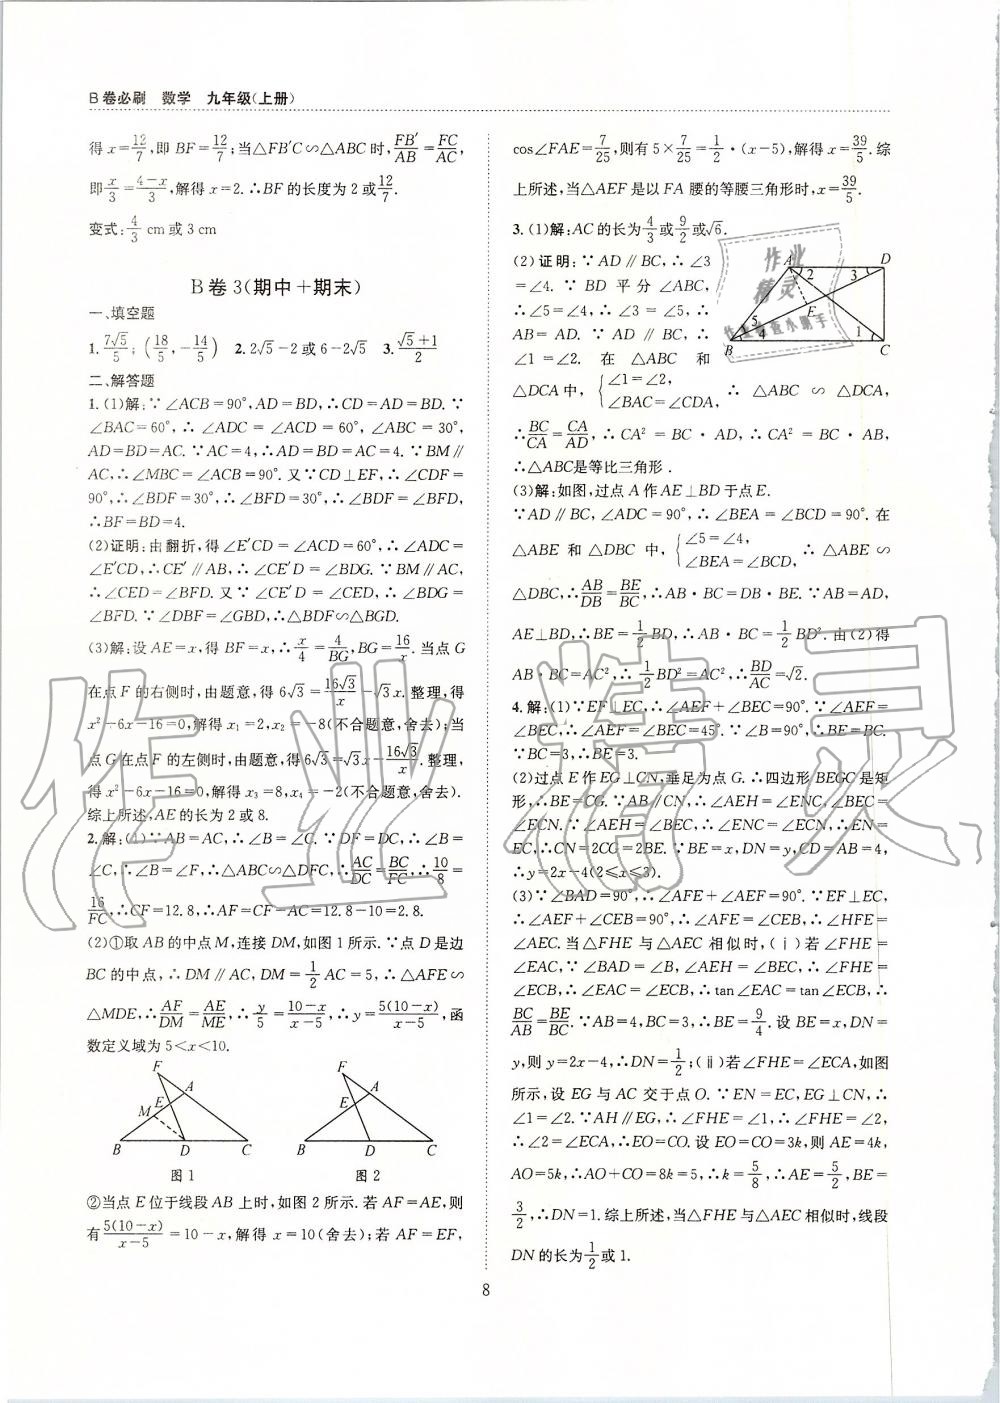 B卷必刷 数学 九年级(上册)
得 x=12/7,即 BF=12/7;当△FB′C∽△ABC时,FB′/AB=FC/AC,
即x/3=(4-x)/3,解得 x=2.∴BF的长度为 2 或12/7.
变式:4/3 cm或3 cm
B卷3(期中+期末)
一、填空题
1.7√5/5;(18/5,-14/5) 2.2√5-2或6-2√5 3.(√5+1)/2
二、解答题
1.(1)解:∵∠ACB=90°,AD=BD,∴CD=AD=BD.∵
∠BAC=60°,∴∠ADC=∠ACD=60°,∠ABC=30°,
AD=BD=AC.∵AC=4,∴AD=BD=AC=4.∵BM∥
AC,∴∠MBC=∠ACB=90°.又∵CD⊥EF,∴∠CDF=
90°,∴∠BDF=30°,∴∠BFD=30°,∴∠BDF=∠BFD,
∴BF=BD=4.
(2)证明:由翻折,得∠E′CD=∠ACD=60°,∴∠ADC=
∠E′CD,∴CE′∥AB,∴∠CE′D=∠BDG.∵BM∥AC,
∴∠CED=∠BFD.又∵∠CE′D=∠CED,∴∠BDG=
∠BFD.∵∠DBF=∠GBD,∴△BDF∽△BGD.
(3)解:设AE=x,得BF=x,∴x/4=4/BG,BG=16/x.当点G
在点F的右侧时,由题意,得6√3=16√3/x-√3x.整理,得
x²-6x-16=0,解得x₁=2,x₂=-8(不合题意,舍去);当
点G在点F的左侧时,由题意,得6√3=√3x-16√3/x.整理,
得x²-6x-16=0,解得x₃=8,x₄=-2(不合题意,舍去).
综上所述,AE的长为2或8.
2.解:(1)∵AB=AC,∴∠B=∠C.∵DF=DC,∴∠B=
∠C,∴∠B=∠F,∴△ABC∽△DFC,∴AC/DC=BC/FC,∴10/8=
16/FC,∴CF=12.8,∴AF=CF-AC=12.8-10=2.8.
(2)①取AB的中点M,连接DM,如图1所示.∵点D是边
BC的中点,∴DM∥AC,DM=1/2AC=5,∴△AFE∽
△MDE,∴AF/DM=AE/ME,∴y/5=(10-x)/(x-5),∴y=5(10-x)/(x-5),函
数定义域为5<x<10.
F A E M B D C
图1
F A E B D C
图2
②当点E位于线段AB上时,如图2所示.若AF=AE,则
有5(10-x)/(x-5)=10-x,解得x=10(舍去);若AF=EF,
cos∠FAE=7/25,则有5×7/25=1/2·(x-5),解得x=39/5.综
上所述,当△AEF是以FA腰的等腰三角形时,x=39/5.
3.(1)解:AC的长为4/3或9/2或√6.
(2)证明:∵AD∥BC,∴∠3
=∠4.∵BD平分∠ABC,
∴∠5=∠4,∴∠5=∠3,∴
AB=AD.∵AD∥BC,∴
∠1=∠2.在△ABC和
A D 2 3 E 5 4 1 B C
△DCA中,{∠1=∠2,∠BAC=∠CDA,∴△ABC∽△DCA,
∴BC/CA=CA/AD,∴CA²=BC·AD,∴CA²=BC·AB,
∴△ABC是等比三角形.
(3)解:如图,过点A作AE⊥BD于点E.
∵AD∥BC,∠ADC=90°,∴∠BEA=∠BCD=90°.在
△ABE和△DBC中,{∠5=∠4,∠BEA=∠BCD,∴△ABE∽
△DBC,∴AB/DB=BE/BC,∴AB·BC=DB·BE.∵AB=AD,
AE⊥BD,∴BE=1/2BD,∴AB·BC=1/2BD².由(2)得
AB·BC=AC²,∴1/2BD²=AC²,∴BD/AC=√2.
4.解:(1)∵EF⊥EC,∴∠AEF+∠BEC=90°.∵∠AEF=
∠BEC,∴∠AEF=∠BEC=45°.∵∠B=90°,∴BE=BC.
∵BC=3,∴BE=3.
(2)过点E作EG⊥CN,垂足为点G.∴四边形BEGC是矩
形,∴BE=CG.∵AB∥CN,∴∠AEH=∠ENC,∠BEC=
∠ECN.∵∠AEF=∠BEC,∴∠ENC=∠ECN,∴EN=
EC,∴CN=2CG=2BE.∵BE=x,DN=y,CD=AB=4,
∴y=2x-4(2≤x≤3).
(3)∵∠BAD=90°,∴∠AFE+∠AEF=90°.∵EF⊥EC,
∴∠AEF+∠CEB=90°,∴∠AFE=∠CEB,∴∠HFE=
∠AEC.当△FHE与△AEC相似时,(ⅰ)若∠FHE=
∠EAC,∵∠BAD=∠B,∠AEH=∠BEC,∴∠FHE=
∠ECB,∴∠EAC=∠ECB,∴tan∠EAC=tan∠ECB,∴
BC/AB=BE/BC.∵AB=4,BC=3,∴BE=9/4.设BE=x,DN=
y,则y=2x-4,∴DN=1/2;(ⅱ)若∠FHE=∠ECA,如图
所示,设EG与AC交于点O.∵EN=EC,EG⊥CN,∴
∠1=∠2.∵AH∥EG,∴∠FHE=∠1,∴∠FHE=∠2,
∴∠2=∠ECA,∴EO=CO.设EO=CO=3k,则AE=4k,
AO=5k,∴AO+CO=8k=5,∴k=5/8,∴AE=5/2,BE=
3/2,∴DN=1.综上所述,当△FHE与△AEC相似时,线段
DN的长为1/2或1.
8
作业精灵
作业精灵